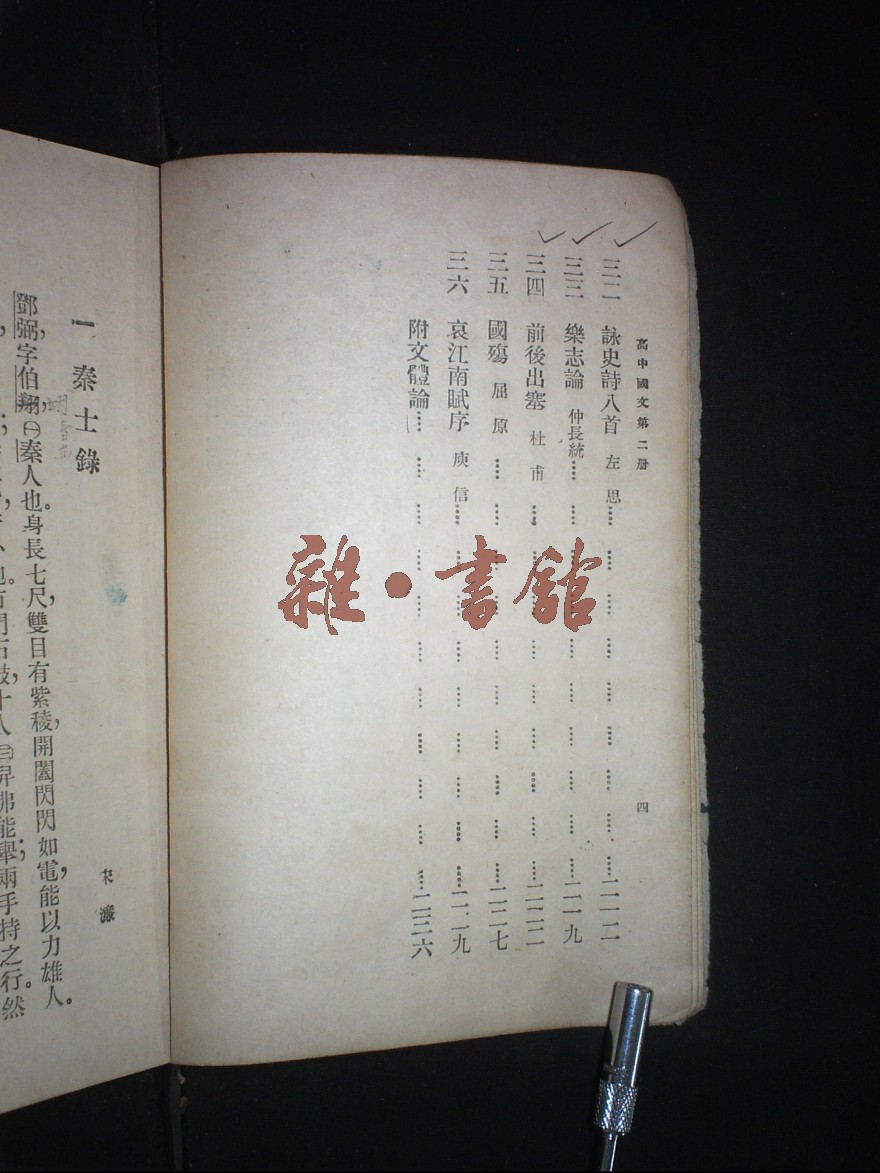 高中國文第二册
四
三二 詠史詩八首 左思 二一二
三三 樂志論 仲長統 二一九
三四 前後出塞 杜甫 二二二
三五 國殤 屈原 二二七
三六 哀江南賦序 庾信 二二九
附文體論 二三六
雜·書館
一 秦士錄
宋濂
鄧弼,字伯翔㊀,秦人也。身長七尺,雙目有紫稜,開闔閃閃如電,能以力雄人。
石鼓,十人㊂舁弗能舉;兩手持之行。然